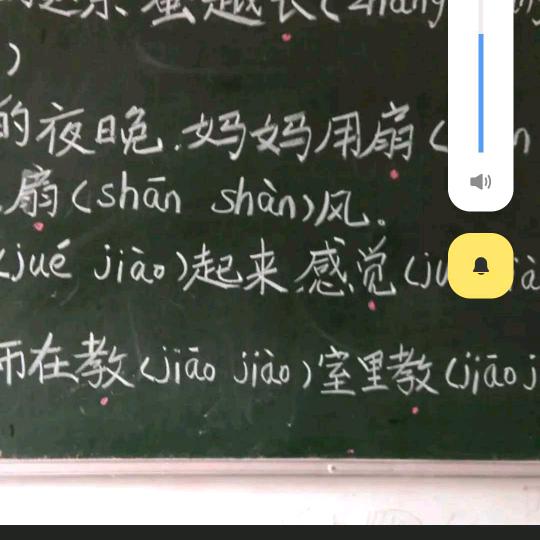 越长(zhǎng
)
的夜晚.妈妈用扇(
扇(shān shàn)风。
(jué jiào)起来.感觉(ju
在教(jiāo jiào)室里教(jiāo j